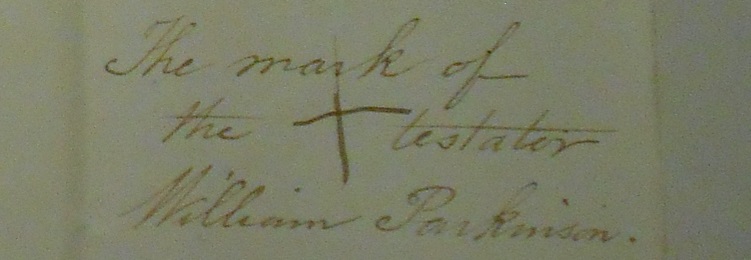 The mark of
the + testator
William Parkinson.